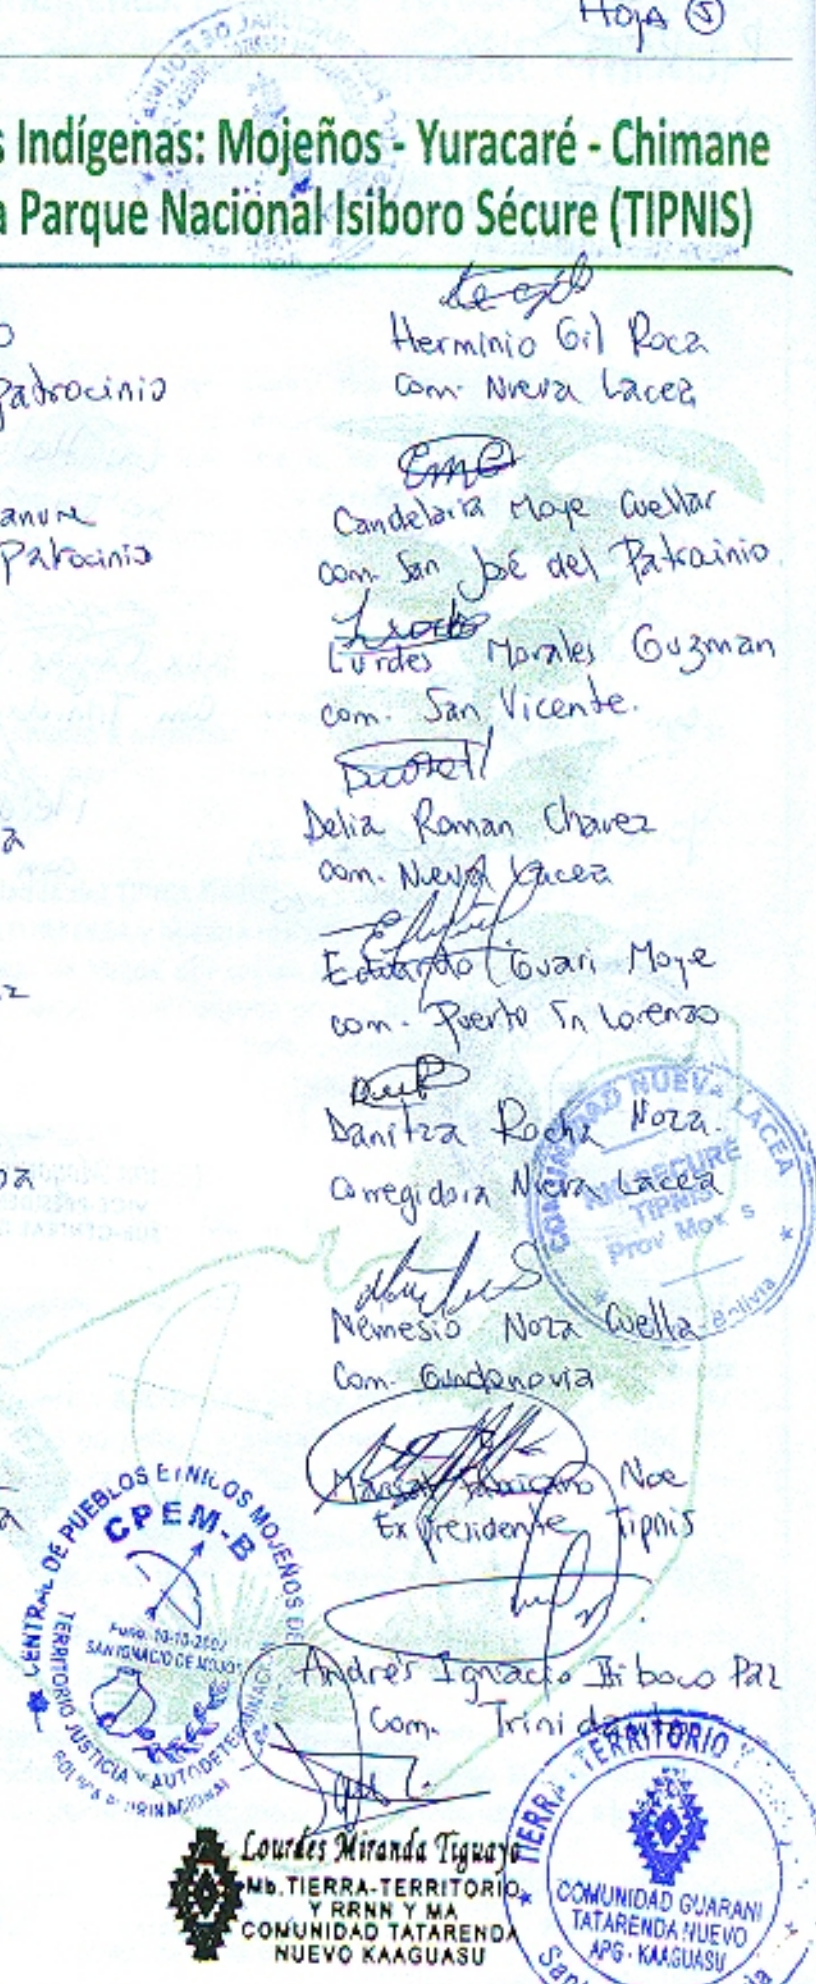 HOJA 5
s Indígenas: Mojeños - Yuracaré - Chimane
a Parque Nacional Isiboro Sécure (TIPNIS)
Herminio Gil Roca
Com. Nueva Lacea
Patrocinio
Candelaria Moye Cuellar
Com. San José del Patrocinio
Patrocinio
Lurdes Morales Guzman
com. San Vicente.
Delia Roman Chavez
Com. Nueva Lacea
Eduardo Guari Moye
com. Puerto Sn Lorenzo
Danitza Rocha Noza.
Corregidora Nueva Lacea
COMUNIDAD NUEVA LACEA
SECURE
TIPNIS
Prov Mox s
Bolivia
Nemesio Noza Cuella
Com.
Noe
Ex presidente Tipnis
CENTRAL DE PUEBLOS ETNICOS MOJEÑOS DE
CPEM-B
Fund. 10-10-2002
SAN IGNACIO DE MOJOS
TERRITORIO JUSTICIA Y AUTODETERMINACION
Andrés Ignacio Paz
Com.
Lourdes Miranda Tiguayo
Mb. TIERRA-TERRITORIO
Y RRNN Y MA
COMUNIDAD TATARENDA
NUEVO KAAGUASU
TIERRA-TERRITORIO
COMUNIDAD GUARANI
TATARENDA NUEVO
APG - KAAGUASU